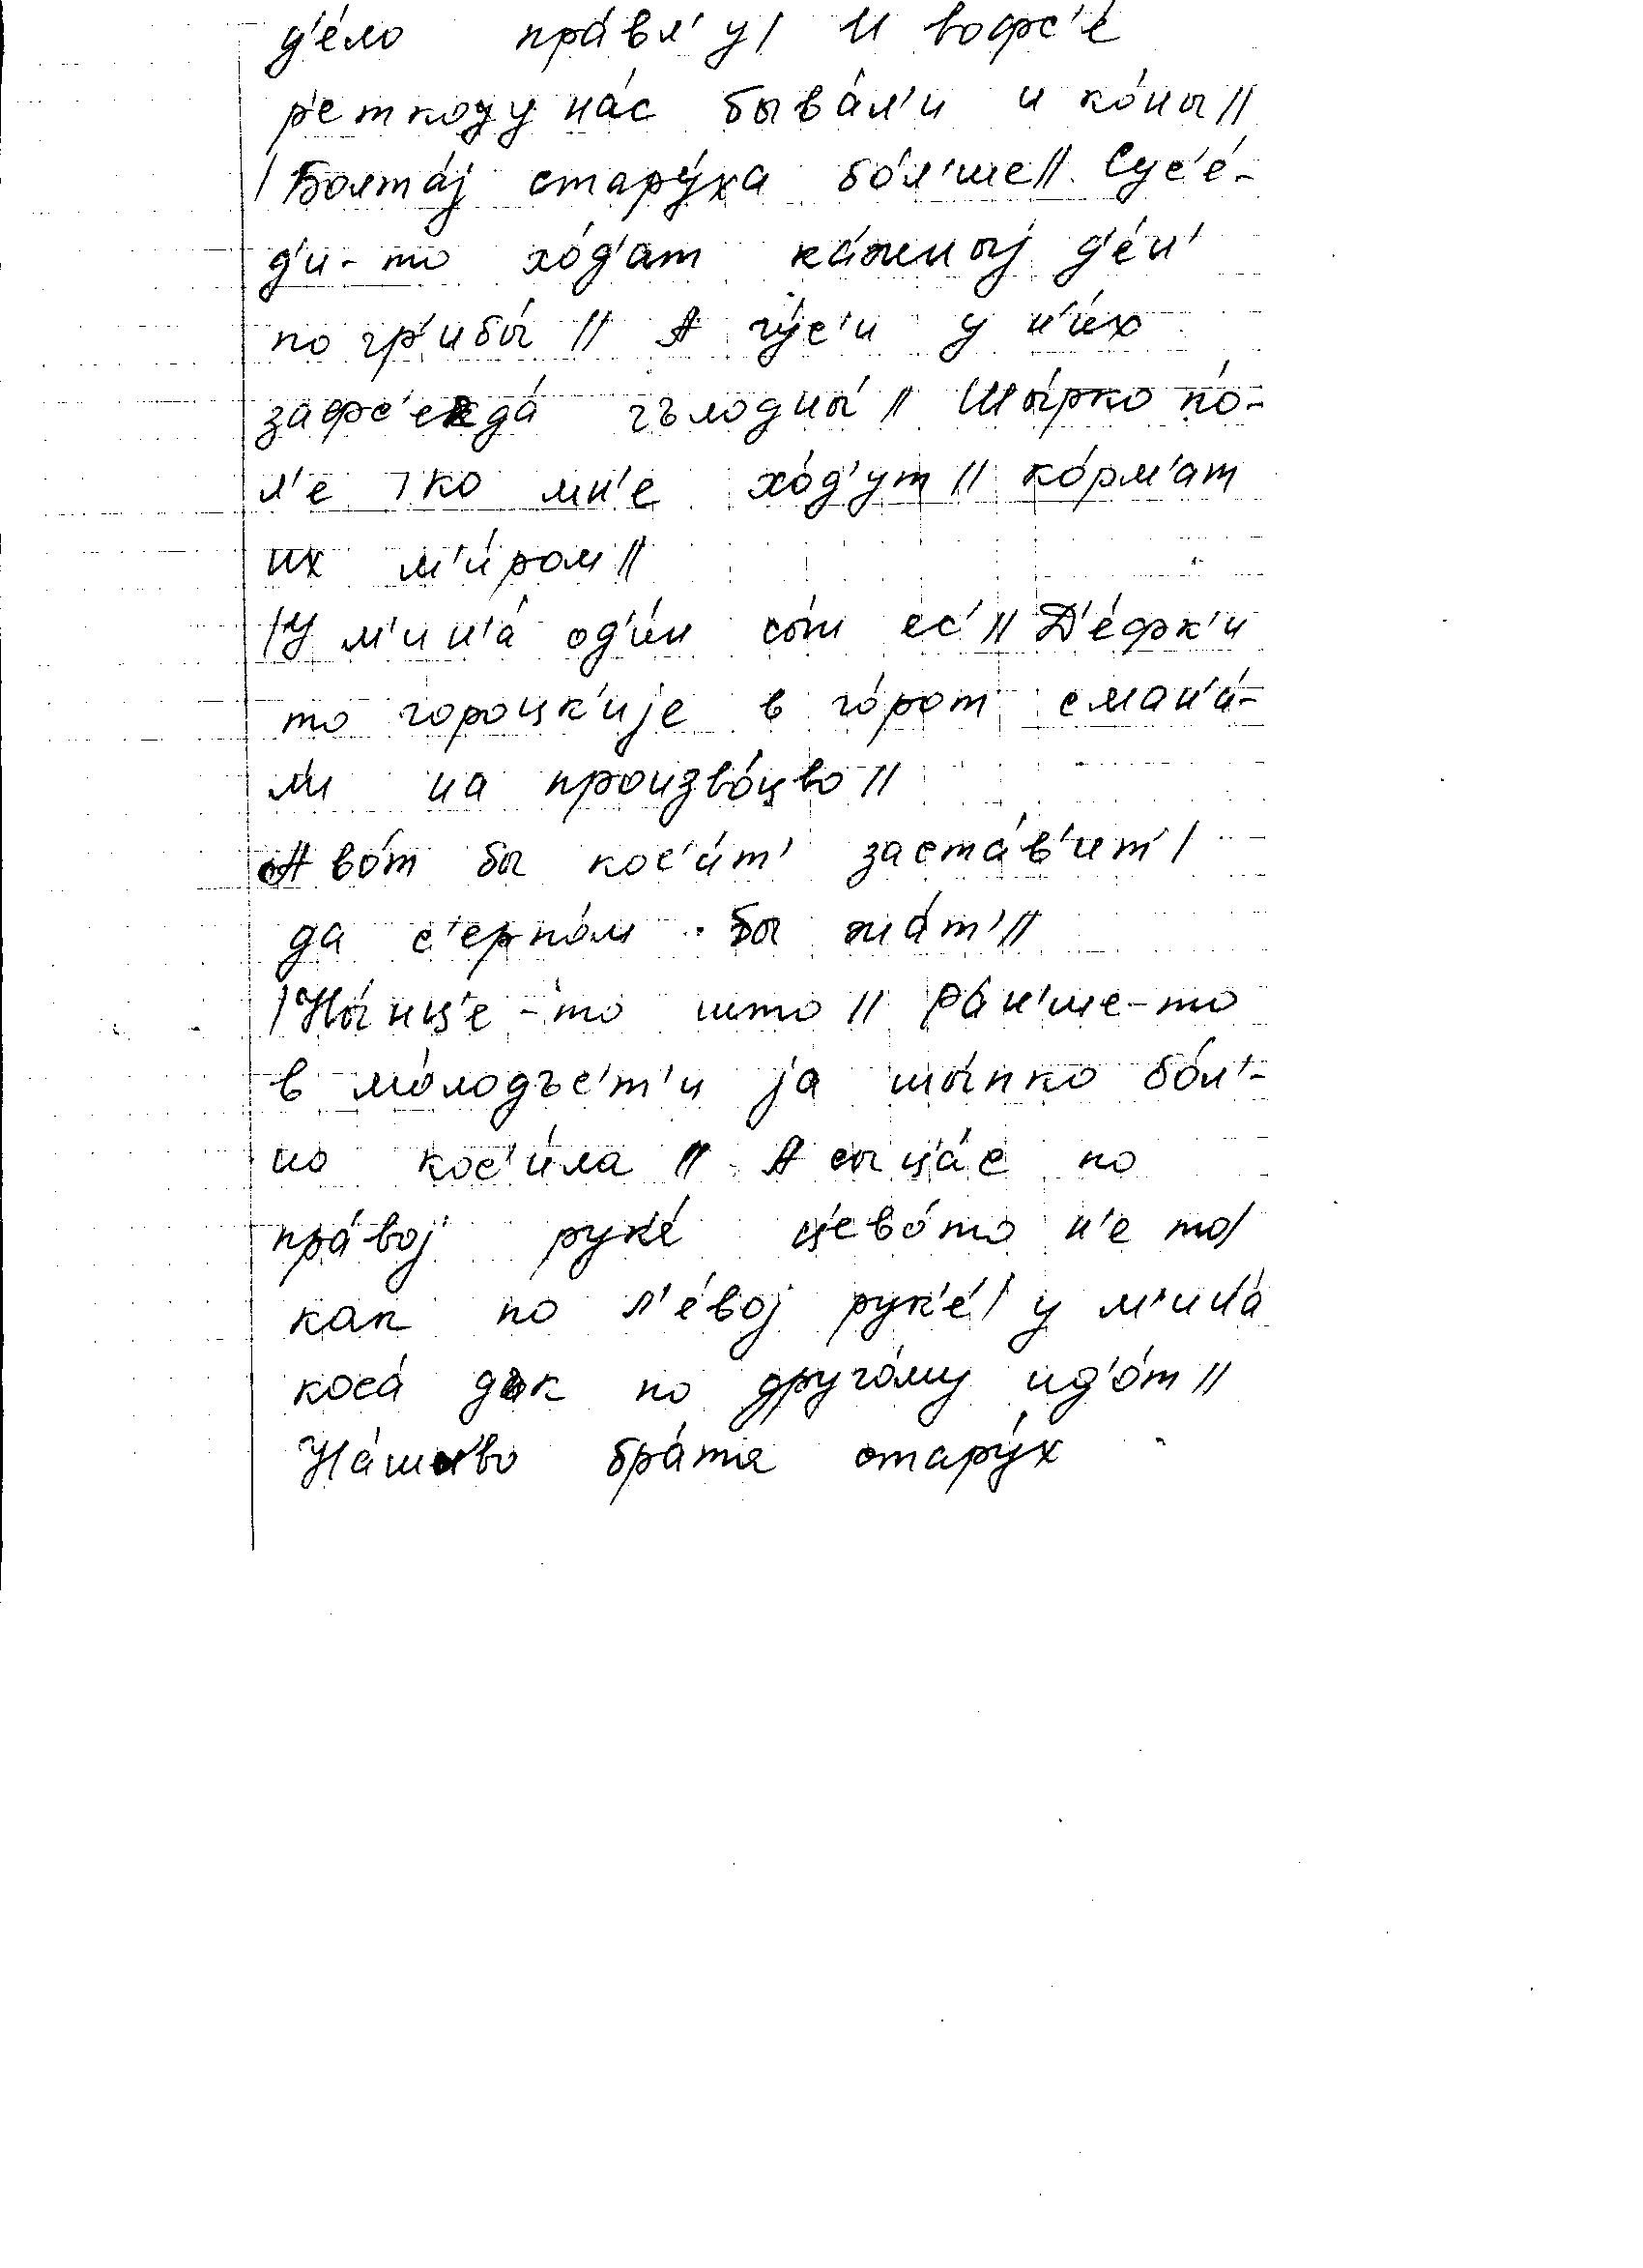 д'е́ло пра́вл'у/ И вофс'е́
р'еткоду на́с быва́л'и и ко́ны//
/Болта́j стару́ха бо́л'ше// Сус'е́-
д'и-то хо́д'ат ка́жныj д'е́н'
по гр'ибы́ // А гу́с'и у н'и́х
зафс'егда́ гълодны́ // Шы́рко по́-
л'е ко мн'е хо́д'ут // ко́рм'ат
их м'и́ром//
/У м'ин'а́ од'и́н сы́н ес'// Д'е́фк'и
то гороцк'иjе в го́рот сман'и́-
ли на произво́цво //
А во́т бы кос'и́т' заста́в'ит'/
да с'ерпо́м бы жа́т'//
/Ны́нц'е-то што // Ра́н'ше-то
в мо́лодъс'т'и jа шы́пко бо́л'-
но кос'и́ла // А сыц'а́с по
пра́воj рук'е́ ц'ево́то н'е то/
как по л'е́воj рук'е́/ у м'ин'а́
коса́ дък по друго́му ид'о́т //
На́шыво бра́та стару́х